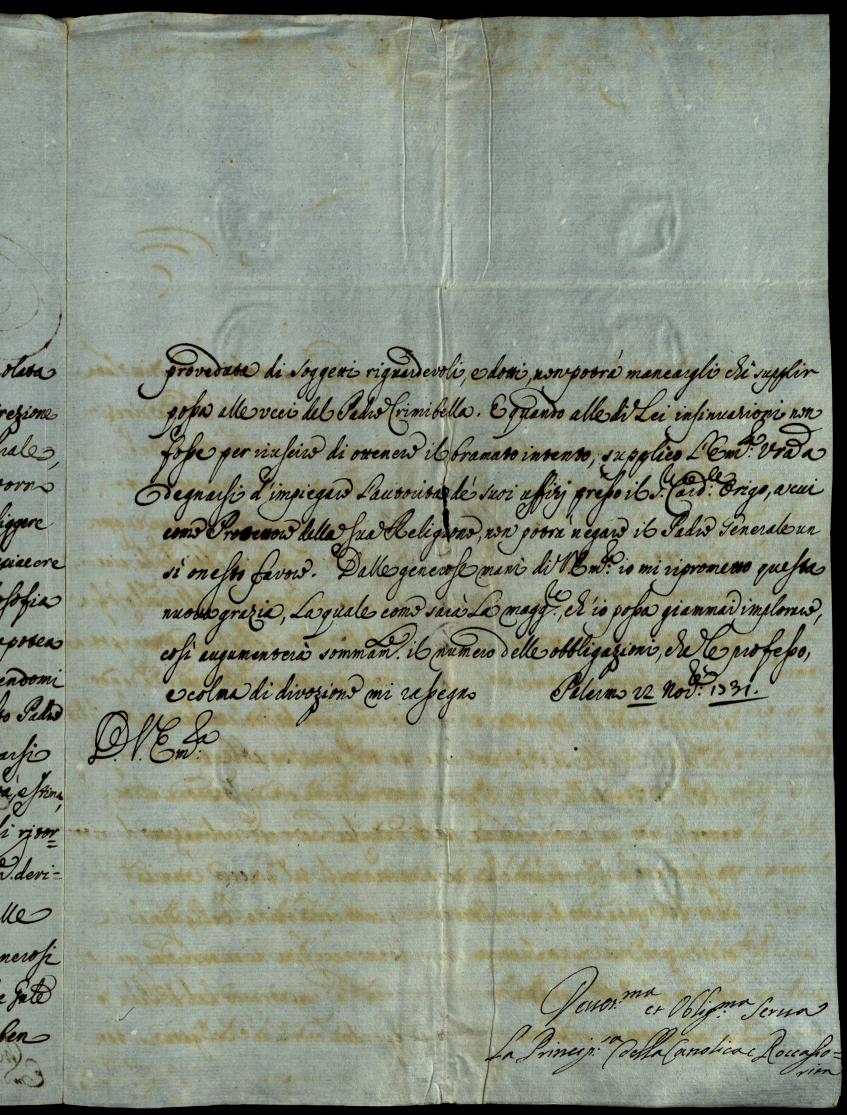 olata
rezione
rale,
torno
liggere
osofia
apotea
endomi
to Padre
arsi
tà, estima,
li ritor=
deri=
lle
nerosi
ben
proveduta di soggetti riguardevoli, e dotti, non potrà mancargli chi supplir
possa alle veci del Padre Crimibella. E quando alle di Lei insinuazioni non
fosse per riuscire di ottenere il bramato intento, supplico L'Em.ª Vra a
degnarsi d'impiegare l'autorità de' suoi uffizj presso il S.r Card.le Origo, a cui
come Protettore della sua Religione, non potrà negare il Padre Generale un
sì onesto favore. Dalle generose mani di V. Em.ª io mi riprometto questa
nuova grazia, La quale come sarà La magg.re, ch'io possa giammai implorare,
così augumenterà sommam.te il numero delle obbligazioni, che Le professo,
e colma di divozione mi rassegno Palermo 22 Nov.bre 1731.
D. V. Em.za
Devot.ma et Oblig.ma Serva
La Princip.sa della Catolica e Roccafio=
rita